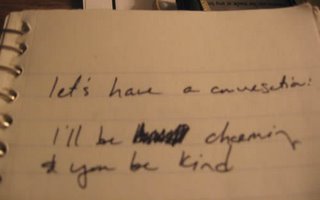 let's have a conversation:
I'll be charming
& you be kind